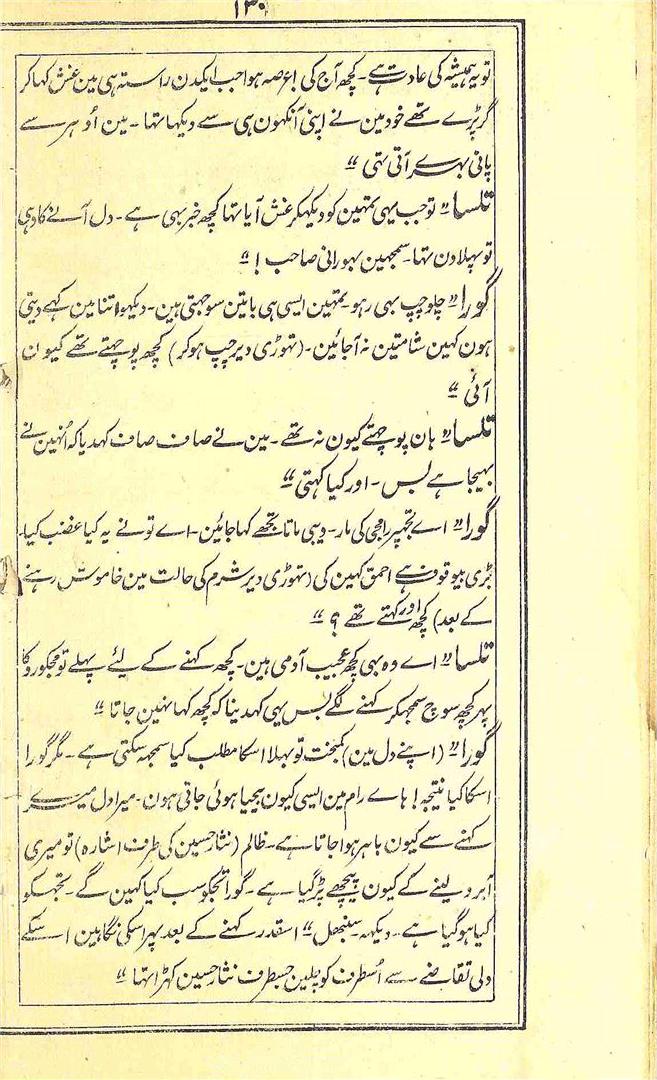 ۱۳۰
تو یہ ہمیشہ کی عادت ہے۔ کچھ آج کی اعرصہ ہوا جب ایکدن راستہ ہی مین غش کہا کر
گر پڑے تھے خود مین نے اپنی آنکہون ہی سے دیکہا تہا۔ مین اُودہر سے
پانی بہرے آتی تہی “
تلسا ” تو جب یہی تمہین کو دیکہکر غش آیا تہا کچھ خبر بہی ہے۔ دل آنے کا وہی
تو پہلا دن تہا۔ سمجہین بہورانی صاحب ! “
گورا ” چلو چپ بہی رہو۔ تمہین ایسی ہی باتین سوجہتی ہین۔ دیکہو اتنا مین کہے دیتی
ہون کہین شامتین نہ آجائین۔ (تہوڑی دیر چپ ہوکر) کچھ پوچہتے تھے کیون
آئی “
تلسا ” ہان پوچہتے کیون نہ تھے۔ مین نے صاف صاف کہدیا کہ اُنہین نے
بہیجا ہے بس۔ اور کیا کہتی “
گورا ” اے تجہپر رامجی کی مار۔ دیبی ماتا تجھے کہا جائین۔ اے تونے یہ کیا غضب کیا۔
بڑی بیوقوف ہے احمق کہین کی (تہوڑی دیر شرم کی حالت مین خاموش رہنے
کے بعد) کچھ اور کہتے تھے ؟ “
تلسا ” اے وہ بہی کچھ عجیب آدمی ہین۔ کچھ کہنے کے لیئے پہلے تو مجکو روکا
پہر کچھ سوچ سمجہکر کہنے لگے بس یہی کہدینا کہ کچھ کہا نہین جاتا “
گورا ” (اپنے دل مین) کمبخت تو بہلا اسکا مطلب کیا سمجہ سکتی ہے۔ مگر گورا
اسکا کیا نتیجہ ! ہاے رام مین ایسی کیون بیحیا ہوئی جاتی ہون۔ میرا دل میرے
کہنے سے کیون باہر ہوا جاتا ہے۔ ظالم (نثار حسین کی طرف اشارہ) تو میری
آبرو لینے کے کیون پیچھے پڑگیا ہے۔ گورا تجکو سب کیا کہین گے۔ تجہکو
کیا ہوگیا ہے۔ دیکہہ۔ سنبہل “ اسقدر کہنے کے بعد پہر اسکی نگاہین اسکے
دلی تقاضے سے اُسطرف کو چلین جسطرف نثار حسین کہڑا تہا “